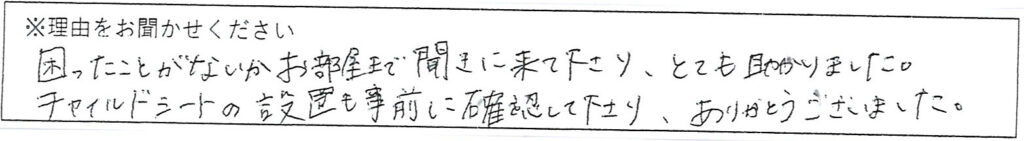 ※理由をお聞かせください
困ったことがないかお部屋まで聞きに来て下さり、とても助かりました。
チャイルドシートの設置も事前に確認して下さり、ありがとうございました。